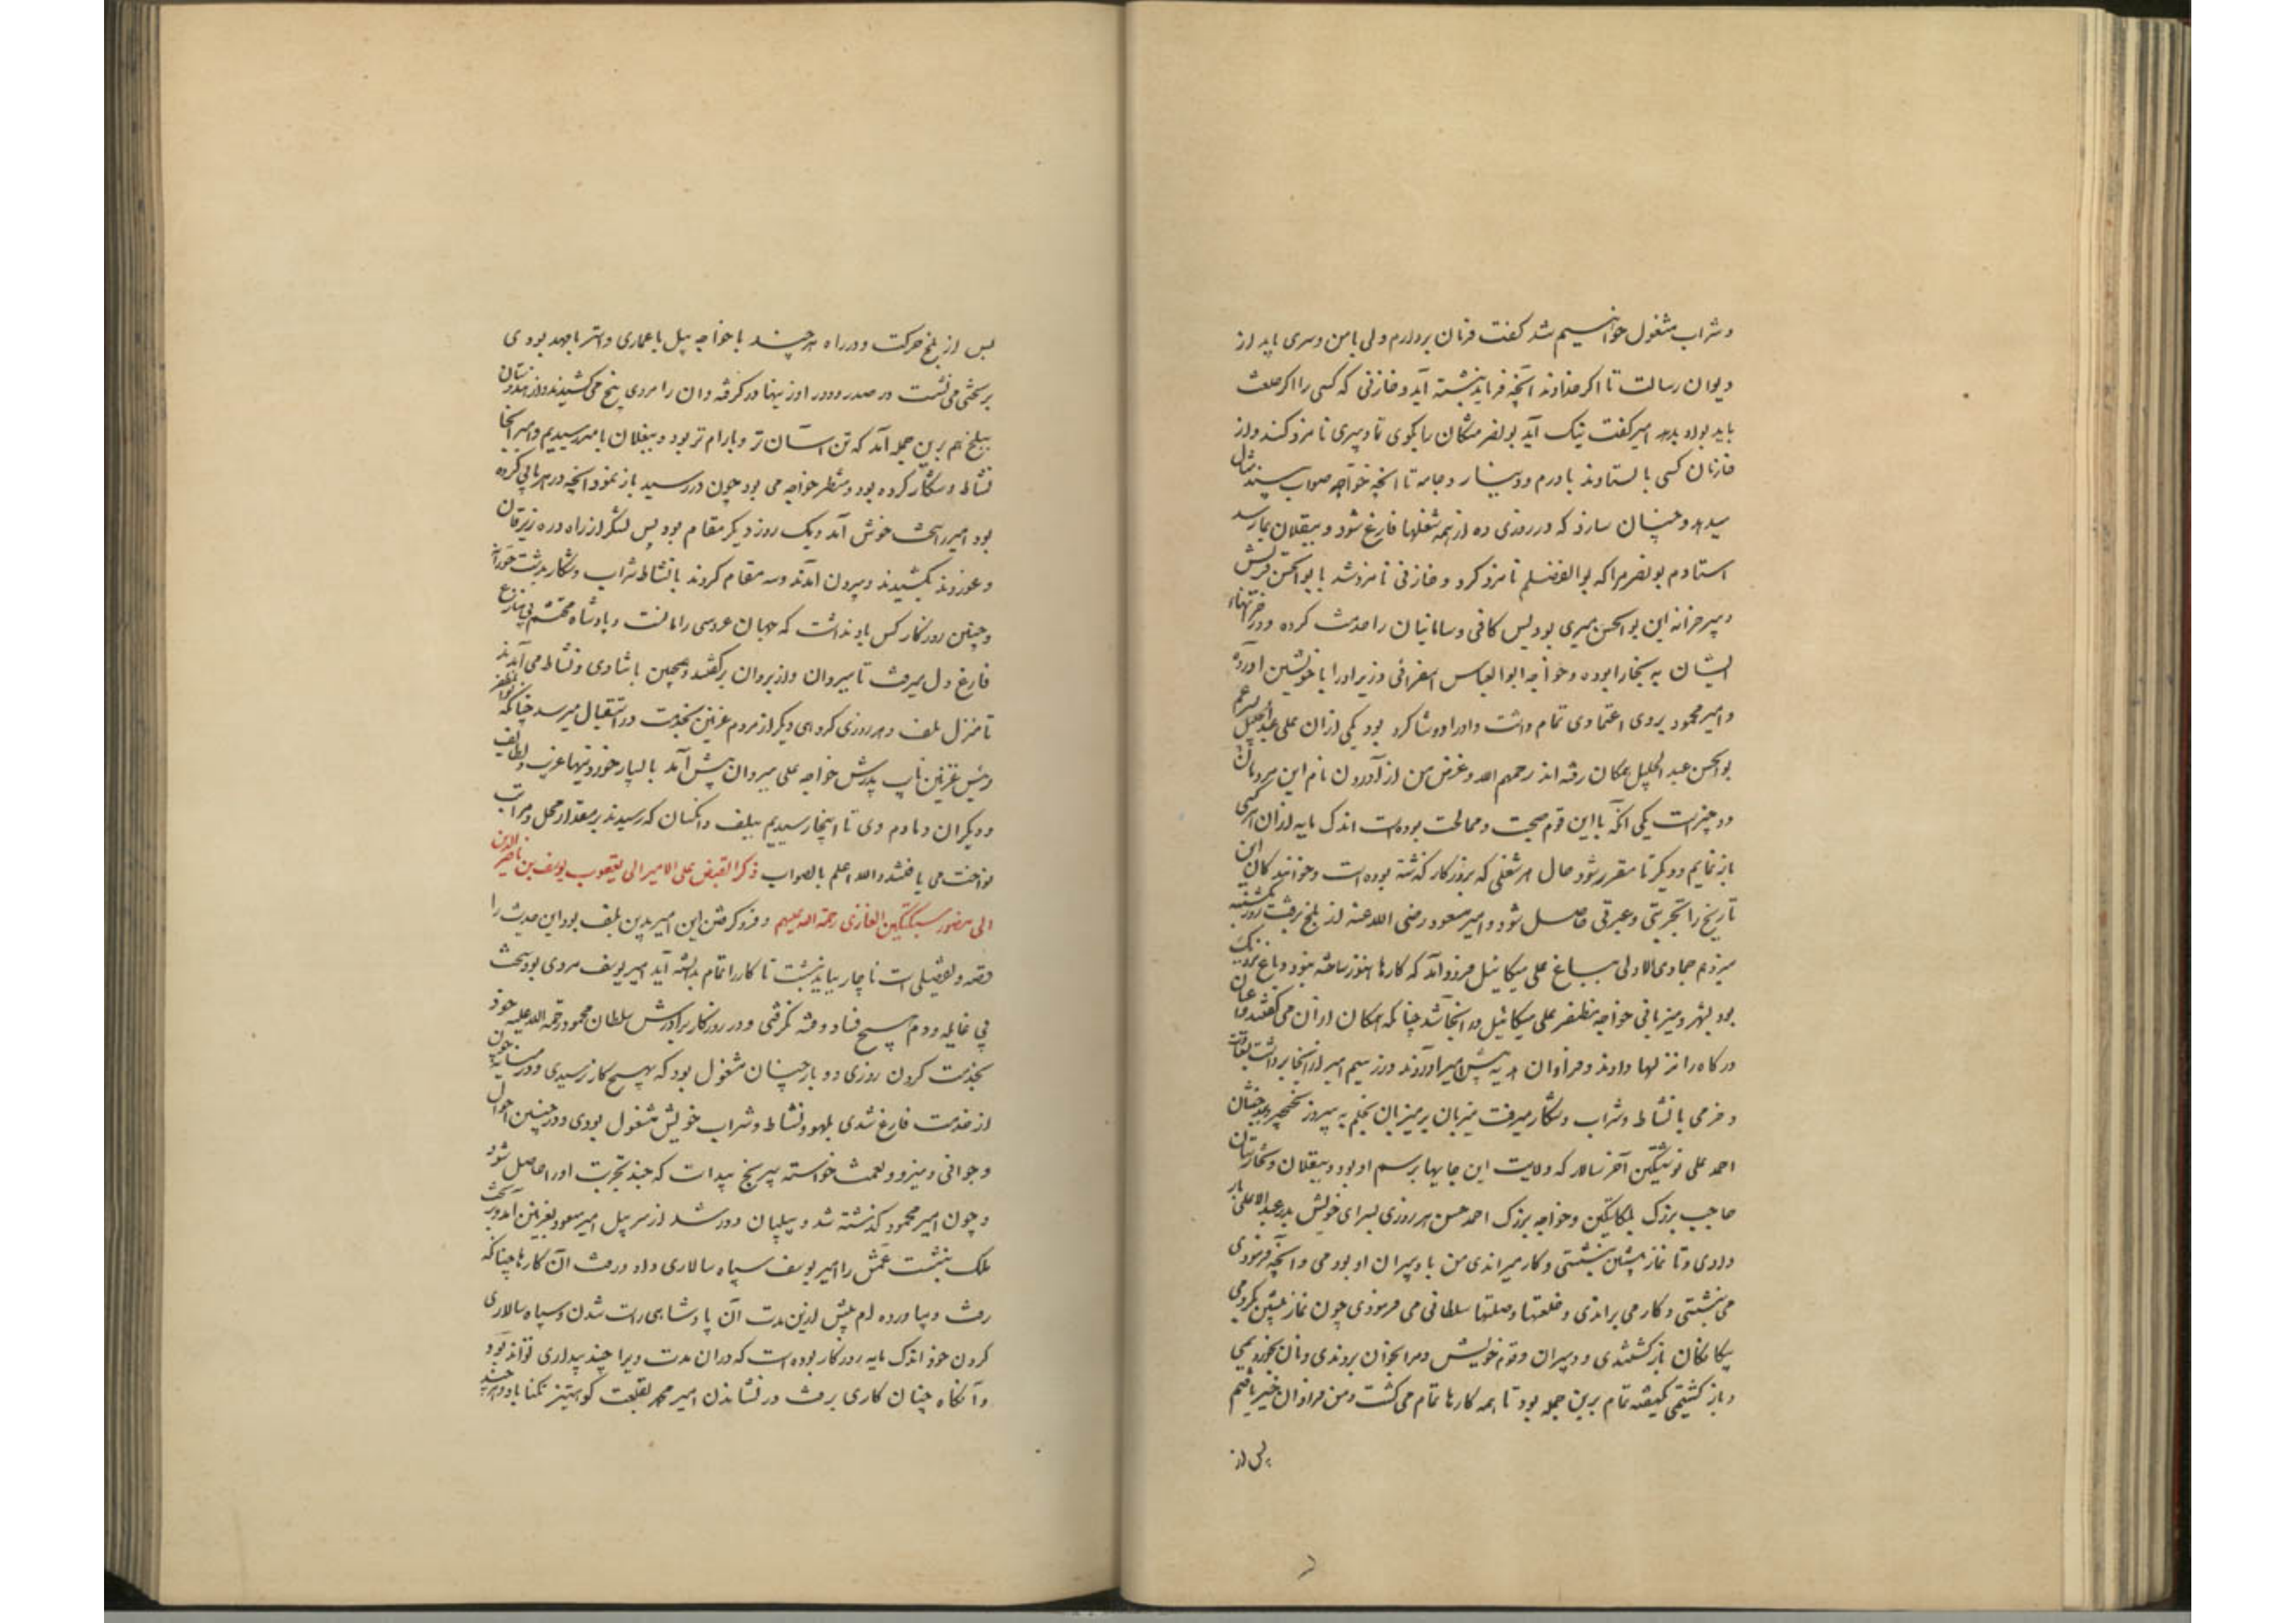 و شراب مشغول خواهیم شد گفت فرمان بردارم ولی با من دبیری باید از
دیوان رسالت تا اگر خداوند آنچه فرماید نبشته آید و خازنی که کسی را اگر خلعت
باید بود و بدهد امیر گفت نیک آید بونصر مشکان را بگوی تا دبیری نامزد کند و از
خازنان کسی با لستاوند با درم و دینار و جامه تا آنچه خواجه صواب بیند مثال
میدهد و چنان سازد که در روزی ده از همه شغلها فارغ شود و ببقلان بما رسد
استادم بونصر مرا که بوالفضلم نامزد کرد و خازنی نامزد شد با بوالحسن قریش
دبیر خزانه این بوالحسن دبیری بود بس کافی و سامانیان را خدمت کرده و در خزینهاء
ایشان به بخارا بوده و خواجه ابوالعباس اسفرائنی وزیر او را با خویشتن آورده
و امیر محمود بروی اعتمادی تمام داشت و او را دو شاگرد بود یکی ازان علی عبدالجلیل پسر عم
بوالحسن عبدالجلیل همکان رفته اند رحمهم الله و غرض من از آوردن نام این مردمان
دو چیزست یکی آنکه با این قوم صحبت و ممالحت بوده است اندک مایه ازان هر کسی
باز نمایم و دیگر تا مقرر شود حال هر شغلی که بروزگار گذشته بوده است و خوانندگان این
تاریخ را تجربتی و عبرتی حاصل شود و امیر مسعود رضی الله عنه از بلخ برفت روز یکشنبه
سیزدهم جمادی الاولی بباغ علی میکائیل فرود آمد که کارها هنوز ساخته نبود و باغ نزدیک
بود بشهر و میزبانی خواجه مظفر علی میکائیل در آنجا شد چنانکه همگان ازان می گفتند و اعیان
درگاه را نزلها دادند و فراوان هدیه پیش امیر آوردند و زر سیم امیر از آنجا برداشت بسعادت
و خرمی با نشاط و شراب و شکار میرفت میزبان بر میزبان بخلم به پیروز نخچیر و بدخشان
احمد علی نوشتگین آخر سالار که ولایت این جایها برسم او بود و ببقلان و تخارستان
حاجب بزرگ بلکاتگین و خواجه بزرگ احمد حسن هر روزی بسرای خویش بدر عبدالاعلی بار
دادی و تا نماز پیشین بنشستی و کار میراندی من با دبیران او بودمی و آنچه فرمودی
می نبشتمی و کار می براندی و خلعتها و صلتها سلطانی می فرمودی چون نماز پیشین بکردیمی
بیگانگان بازگشتندی و دبیران و قوم خویش و مرا بخوان بردندی و نان بخوردیمی
و باز گشتیمی یکهفته تمام برین جمله بود تا همه کارها تمام می گشت و من فراوان چیز یافتم
پس از
پس از بلخ حرکت و در راه هر چند با خواجه پیل با عماری و استر با مهد بود وی
بر تختی می نشست در صدر و دور او زینها در گرفته و ان را مردی پنج می کشیدند و از هندوستان
ببلخ هم برین جمله آمد که تن آسان تر و بارام تر بود و ببغلان بامیر رسیدیم و امیر آنجا
نشاط و شکار کرده بود و منتظر خواجه می بود چون در رسید باز نمود آنچه در هر بابی کرده
بود امیر را سخت خوش آمد و یک روز دیگر مقام بود پس لشکر از راه دره زیرقان
و غوروند بکشیدند و بیرون آمدند و سه مقام کردند با نشاط شراب و شکار بدشت حورانه
و چنین روزگار کس یاد نداشت که جهان عروسی را مانست و پادشاه محتشم بی منازع
فارغ دل میرفت تا بپروان و از پروان برفتند و همچنین با شادی و نشاط می آمدند
تا منزل بلف و هر روزی گروهی دیگر از مردم غزنین بخدمت و استقبال میرسید چنانکه بوالمظفر
رئیس غزنین نایب پدرش خواجه علی بپروان پیش آمد با بسیار خوردنیها غریب و لطایف
و دیگران دمادم وی تا اینجا رسیدیم ببلف و آنکسان که رسیدند بر مقدار محل و مراتب
نواخت می یافتند والله اعلم بالصواب ذکر القبض علی الامیر ابی یعقوب یوسف بن ناصر الدین
ابی منصور سبکتکین الغازی رحمة الله علیهم و فرو گرفتن این امیر بدین بلف بود این حدیث را
قصه و تفصیلی است ناچار بباید نبشت تا کار را تمام بدانسته آید امیر یوسف مردی بود سخت
بی غایله و دم هیچ فساد و فتنه نگرفتی و در روزگار برادرش سلطان محمود رحمة الله علیه خود
بخدمت کردن روزی دو بار چنان مشغول بود که بهیچ کار نرسیدی و در میانه چون
از خدمت فارغ شدی بلهو و نشاط و شراب خویش مشغول بودی و در چنین احوال
و جوانی و نیرو و نعمت خواسته بیرنج پیداست که چند تجربت او را حاصل شود
و چون امیر محمود گذشته شد و پیلبان دور شد از سر پیل امیر مسعود بغزنین آمد و بر تخت
ملک بنشست عمش را امیر یوسف سپاه سالاری داد و رفت آن کارها چنانکه
رفت و بیاورده ام پیش ازین مدت آن پادشاهی راست شدن و سپاه سالاری
کردن خود اندک مایه روزگار بوده است که دران مدت ویرا چند بیداری تواند بود
و آنگاه چنان کاری برفت در نشاندن امیر محمد بقلعت کوهتیز تکناباد و هر چند